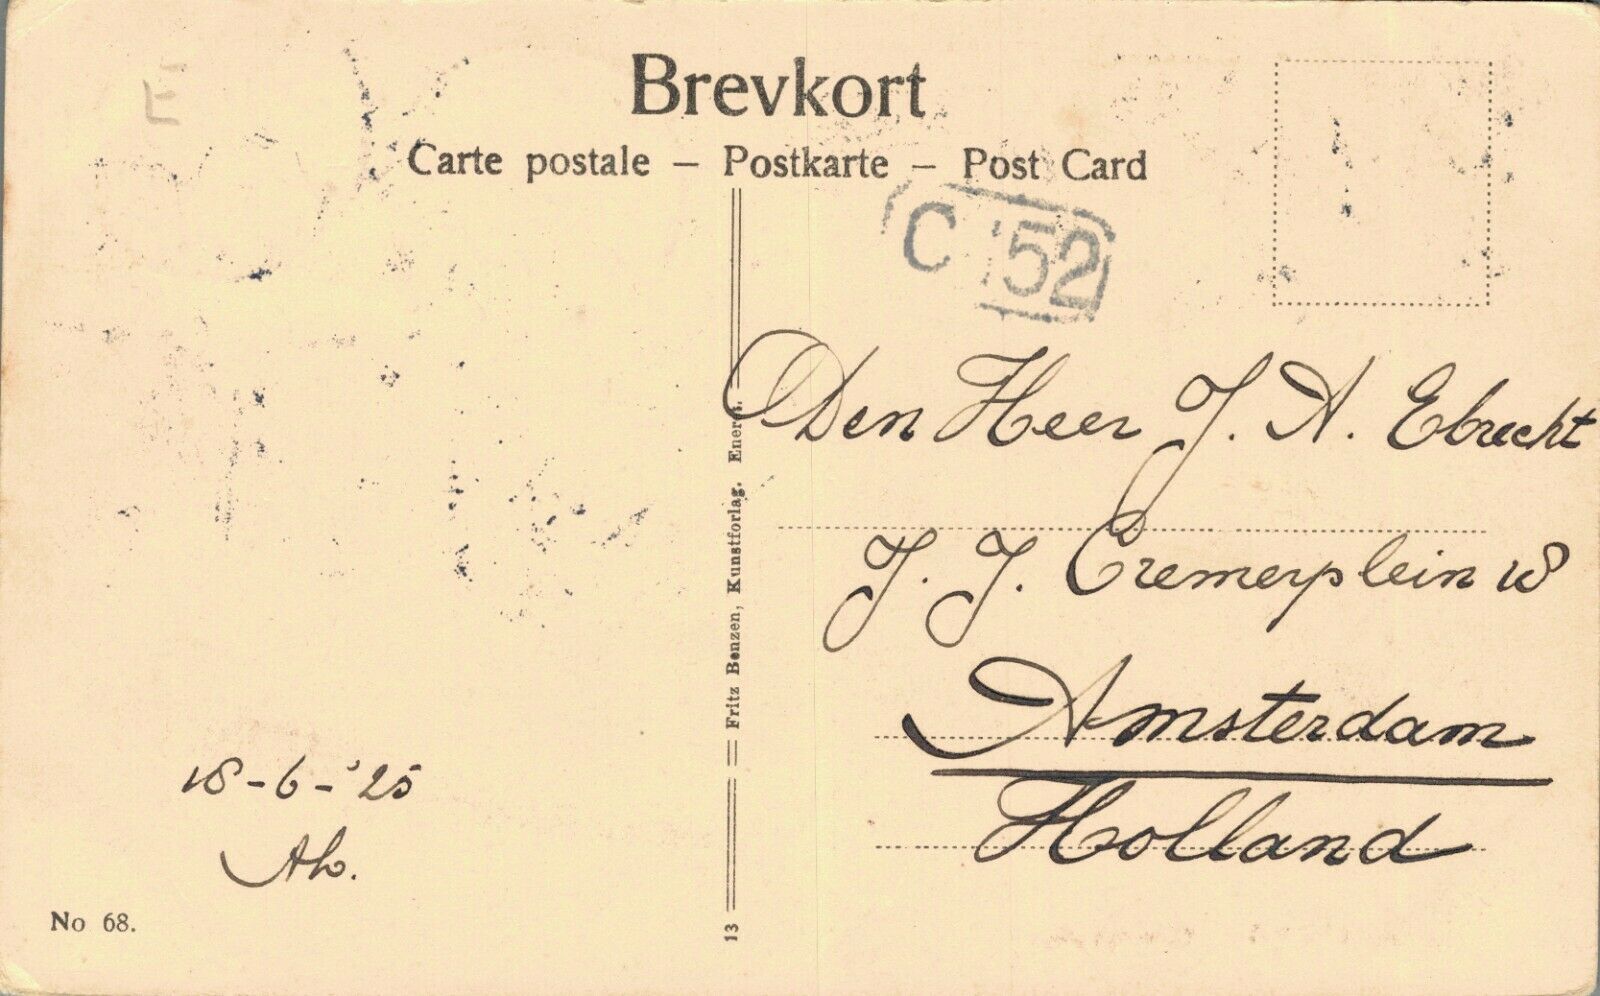 Brevkort
Carte postale – Postkarte – Post Card
C 152
Den Heer J. A. Ebrecht
J. J. Cremerplein 18
Amsterdam
Holland
18-6-'25
Ah.
No 68.
13
Fritz Benzen, Kunstforlag.